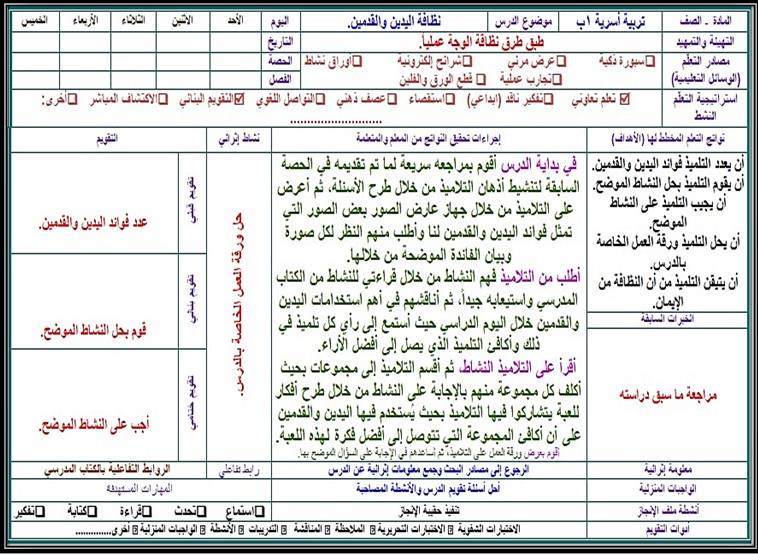 المادة - الصف
تربية أسرية ١ب
موضوع الدرس
نظافة اليدين والقدمين.
اليوم
الأحد
الاثنين
الثلاثاء
الأربعاء
الخميس
التهيئة والتمهيد
طبق طرق نظافة الوجة عملياً.
التاريخ
مصادر التعلم
(الوسائل التعليمية)
□سبورة ذكية □عرض مرئي □شرائح إلكترونية □أوراق نشاط
□تجارب عملية □ قطع الورق والفلين
الحصة
الفصل
استراتيجية التعلم
النشط
☑ تعلم تعاوني □تفكير ناقد (ابداعي) □استقصاء □عصف ذهني □التواصل اللغوي ☑التقويم البنائي □الاكتشاف المباشر □أخرى:
............................
نواتج التعلم المخطط لها (الأهداف)
إجراءات تحقيق النواتج من المعلم والمتعلمة
نشاط إثرائي
التقويم
أن يعدد التلميذ فوائد اليدين والقدمين.
أن يقوم التلميذ بحل النشاط الموضح.
أن يجيب التلميذ على النشاط
الموضح.
أن يحل التلميذ ورقة العمل الخاصة
بالدرس.
أن يتيقن التلميذ من أن النظافة من
الإيمان.
الخبرات السابقة
مراجعة ما سبق دراسته
في بداية الدرس أقوم بمراجعه سريعة لما تم تقديمه في الحصة
السابقة لتنشيط أذهان التلاميذ من خلال طرح الأسئلة، ثم أعرض
على التلاميذ من خلال جهاز عارض الصور بعض الصور التي
تمثل فوائد اليدين والقدمين لنا وأطلب منهم النظر لكل صورة
وبيان الفائدة الموضحة من خلالها.
أطلب من التلاميذ فهم النشاط من خلال قراءتي للنشاط من الكتاب
المدرسي واستيعابه جيداً، ثم أناقشهم في أهم استخدامات اليدين
والقدمين خلال اليوم الدراسي حيث أستمع إلى رأي كل تلميذ في
ذلك وأكافئ التلميذ الذي يصل إلى أفضل الأراء.
أقرأ على التلاميذ النشاط، ثم أقسم التلاميذ إلى مجموعات بحيث
أكلف كل مجموعة منهم بالإجابة على النشاط من خلال طرح أفكار
للعبة يتشاركوا فيها التلاميذ بحيث يُستخدم فيها اليدين والقدمين
على أن أكافئ المجموعة التي تتوصل إلى أفضل فكرة لهذه اللعبة.
أقوم بعرض ورقة العمل على التلاميذ، ثم أساعدهم في الإجابة على السؤال الموضح بها.
حل ورقة العمل الخاصة بالدرس.
تقويم قبلي
عدد فوائد اليدين والقدمين.
تقويم بنائي
قوم بحل النشاط الموضح.
تقويم ختامي
أجب على النشاط الموضح.
معلومة إثرائية
الرجوع إلى مصادر البحث وجمع معلومات إثرائية عن الدرس
رابط تفاعلي
الروابط التفاعلية بالكتاب المدرسي
الواجبات المنزلية
أحل أسئلة تقويم الدرس والأنشطة المصاحبة
المهارات المستهدفة
أنشطة ملف الإنجاز
تنفيذ حقيبة الإنجاز
□استماع □تحدث □قراءة □كتابة □تفكير
أدوات التقويم
الاختبارات الشفوية الاختبارات التحريرية الملاحظة المناقشة التدريبات الأنشطة الواجبات المنزلية أخرى..............